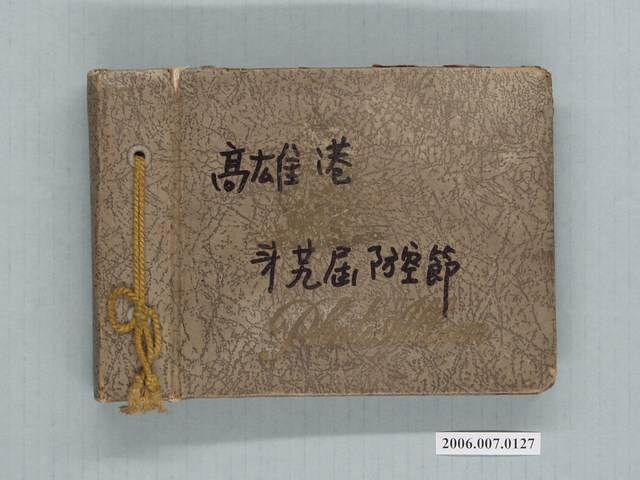 高雄港
廿九屆防空節
Photo Album
2006.007.0127